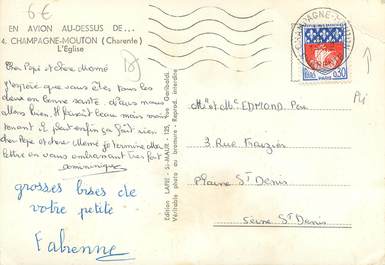 6€
EN AVION AU-DESSUS DE...
4. CHAMPAGNE-MOUTON (Charente)
L'Eglise
18
Cher Pépé et chère Mémé
J'espère que vous êtes tous les
deux en bonne santé. Nous nous
allons bien. Il faisait beau mais
tenant il pleut enfin ça fait rien
cher Pépé et chère Mémé je termine
lettre en vous embrassant très fort
Dominique
grosses bises de
votre petite
Fabienne
Edition LAPIE - St-MAUR - 125, rue Garibaldi
Véritable photo au bromure - Reprod. interdite
CHAMPAGNE-MOUTON
PARIS
0,30
Mr et Mme EDMOND
3, Rue
Plaine St Denis
Seine St Denis